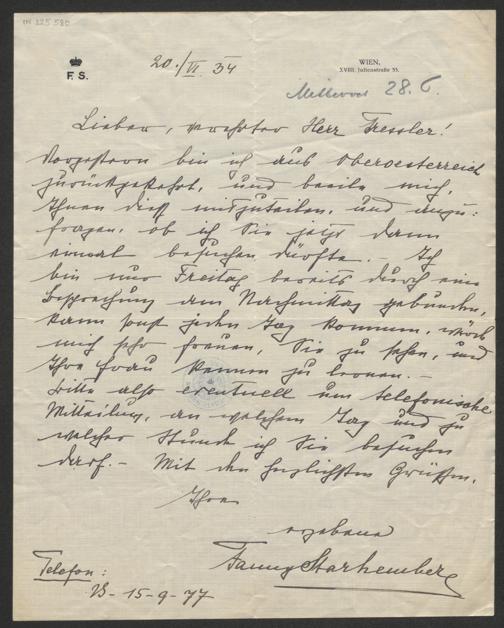 IN 225.580
F. S.
20./VI. 34
WIEN,
XVIII. Julienstraße 35.
Mittwoch 28. 6.
Lieber, verehrter Herr Tressler!
Vorgestern bin ich aus Oberoesterreich
zurückgekehrt, und beeile mich,
Ihnen dieß mitzuteilen, und anzu-
fragen, ob ich Sie jetzt dann
einmal besuchen dürfte. – Ich
bin nur Freitag bereits durch eine
Besprechung am Nachmittag gebunden,
kann sonst jeden Tag kommen, würde
mich sehr freuen, Sie zu sehen, und
Ihre Frau kennen zu lernen. –
Bitte also eventuell um telefonische
Mitteilung, an welchem Tag und zu
welcher Stunde ich Sie besuchen
darf. – Mit den herzlichsten Grüßen,
Ihre
ergebene
Fanny Starhemberg
Telefon:
B-15-9-77